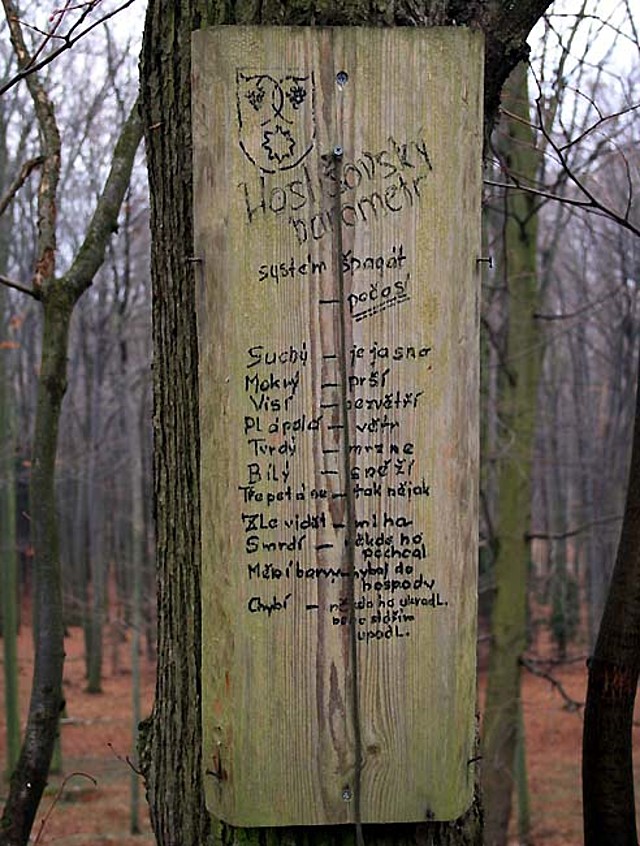 Hoslišovský
barometr
systém špagát
— počasí
Suchý — je jasno
Mokrý — prší
Visí — nevětří
Plápolá — větr
Tvrdý — mrzne
Bílý — sněží
Třepetá se — tak nějak
Zle vidět — mlha
Smrdí — někdo ho
pochcal
Mění barvu — chybal do
hospody
Chybí — někdo ho ukradl.
nebo stářím
upadl.